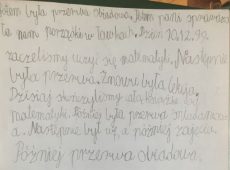 potem była przerwa obiadowa. Potem pani sprawdzała
nam porządki w ławkach. Dzień 10.12.
zaczeliśmy uczyć się matematyki. Następnie
była przerwa. Znowu była lekcja.
Dzisiaj skończyliśmy całą książkę do
matematyki. Później była przerwa śniadaniow
a. Następnie był a później zajęcia.
Później przerwa obiadowa.